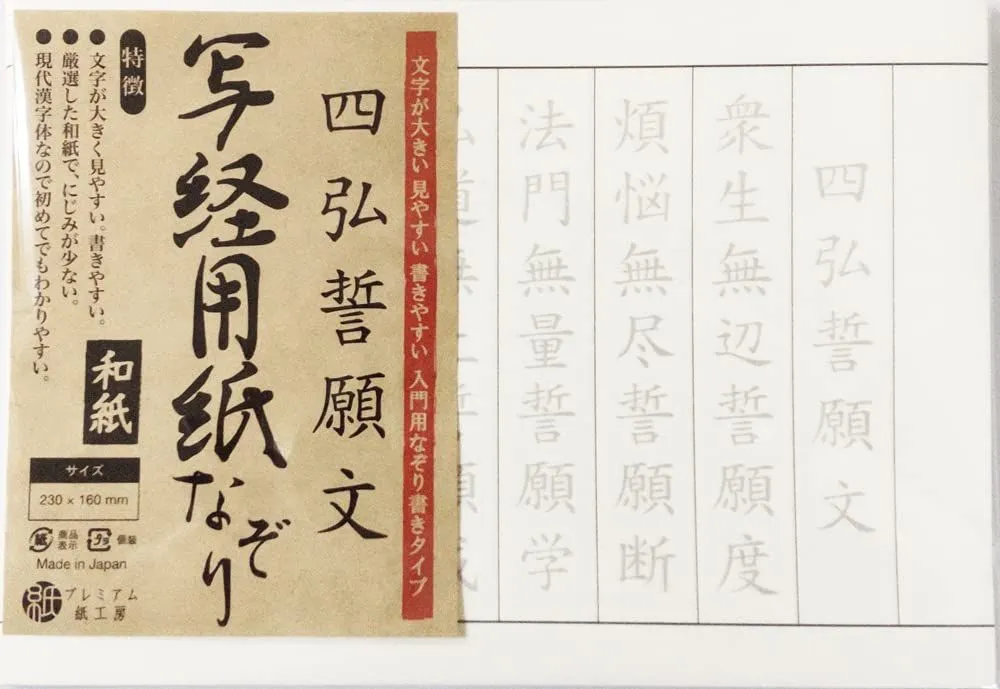 四弘誓願文
衆生無辺誓願度
煩悩無尽誓願断
法門無量誓願学
文字が大きい 見やすい 書きやすい 入門用なぞり書きタイプ
四弘誓願文
写経用紙なぞり
特徴
●文字が大きく見やすい。書きやすい。
●厳選した和紙で、にじみが少ない。
●現代漢字体なので初めてでもわかりやすい。
和紙
サイズ
230 × 160 mm
紙 商品表示 プラ 個装
Made in Japan
紙
プレミアム
紙工房